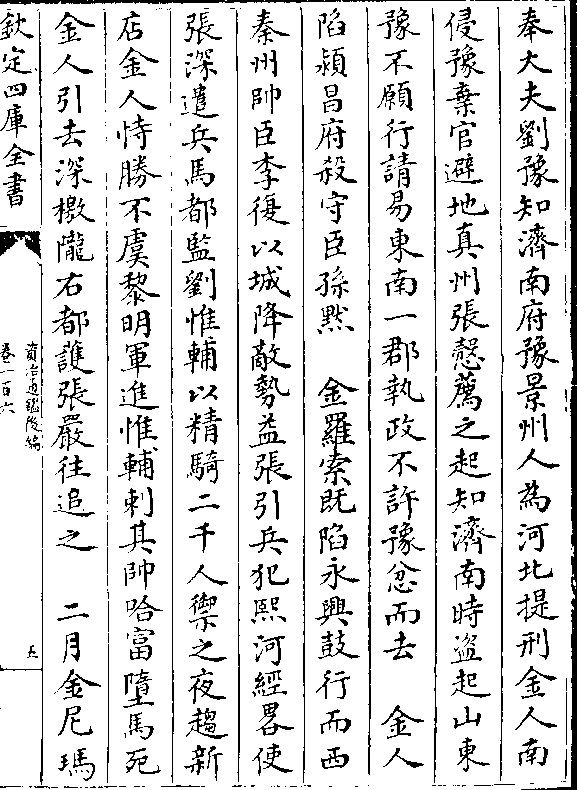 奉大夫劉豫知濟南府豫景州人為河北提刑金人南
侵豫棄官避地真州張慤薦之起知濟南時盗起山東
豫不願行請易東南一郡執政不許豫忿而去　金人
陷潁昌府殺守臣孫黙　金羅索既陷永興鼓行而西
秦州帥臣李復以城降敵勢益張引兵犯熙河經畧使
張深遣兵馬都監劉惟輔以精騎二千人禦之夜趨新
店金人恃勝不虞黎明軍進惟輔刺其帥哈富墮馬死
金人引去深檄隴右都護張嚴往追之　二月金尼瑪
欽定四庫全書
資治通鑑後編
卷一百六
五